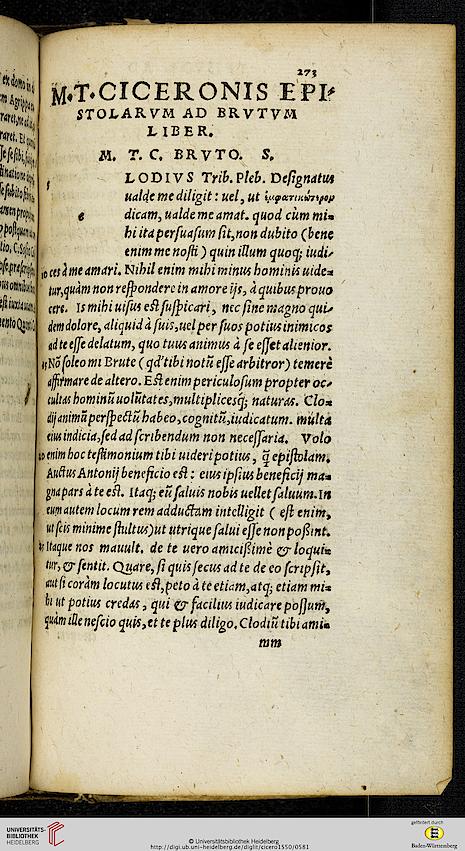 273
M·T·CICERONIS EPI=
STOLARVM AD BRVTVM
LIBER.
M. T. C. BRVTO. S.
LODIVS Trib. Pleb. Designatus
5
ualde me diligit : uel, ut ἐμφατικώτερον
e dicam, ualde me amat. quod cùm mi=
hi ita persuasum sit, non dubito (bene
enim me nosti) quin illum quoq; iudi=
10 ces à me amari. Nihil enim mihi minus hominis uide=
tur, quàm non respondere in amore ijs, à quibus prouo
cere. Is mihi uisus est suspicari, nec sine magno qui=
dem dolore, aliquid à suis, uel per suos potius inimicos
ad te esse delatum, quo tuus animus à se esset alienior.
15 Nō soleo mi Brute (qd' tibi notū esse arbitror) temerè
affirmare de altero. Est enim periculosum propter oc=
cultas hominū uolūtates, multiplicesq; naturas. Clo=
dij animū perspectū habeo, cognitū, iudicatum. multa
eius indicia, sed ad scribendum non necessaria. Volo
20 enim hoc testimonium tibi uideri potius, q̄ epistolam.
Auctus Antonij beneficio est : eius ipsius beneficij ma=
gna pars à te est. Itaq; eū saluis nobis uellet saluum. In
eum autem locum rem adductam intelligit (est enim,
ut scis minime stultus) ut utrique salui esse non poßint.
25 Itaque nos mauult. de te uero amicißimè & loqui=
tur, & sentit. Quare, si quis secus ad te de eo scripsit,
aut si coràm locutus est, peto à te etiam, atq; etiam mi=
hi ut potius credas, qui & facilius iudicare possum,
quàm ille nescio quis, et te plus diligo. Clodiū tibi ami=
mm
UNIVERSITÄTS-
BIBLIOTHEK
HEIDELBERG
© Universitätsbibliothek Heidelberg
http://digi.ub.uni-heidelberg.de/diglit/cicero1550/0581
gefördert durch
Baden-Württemberg